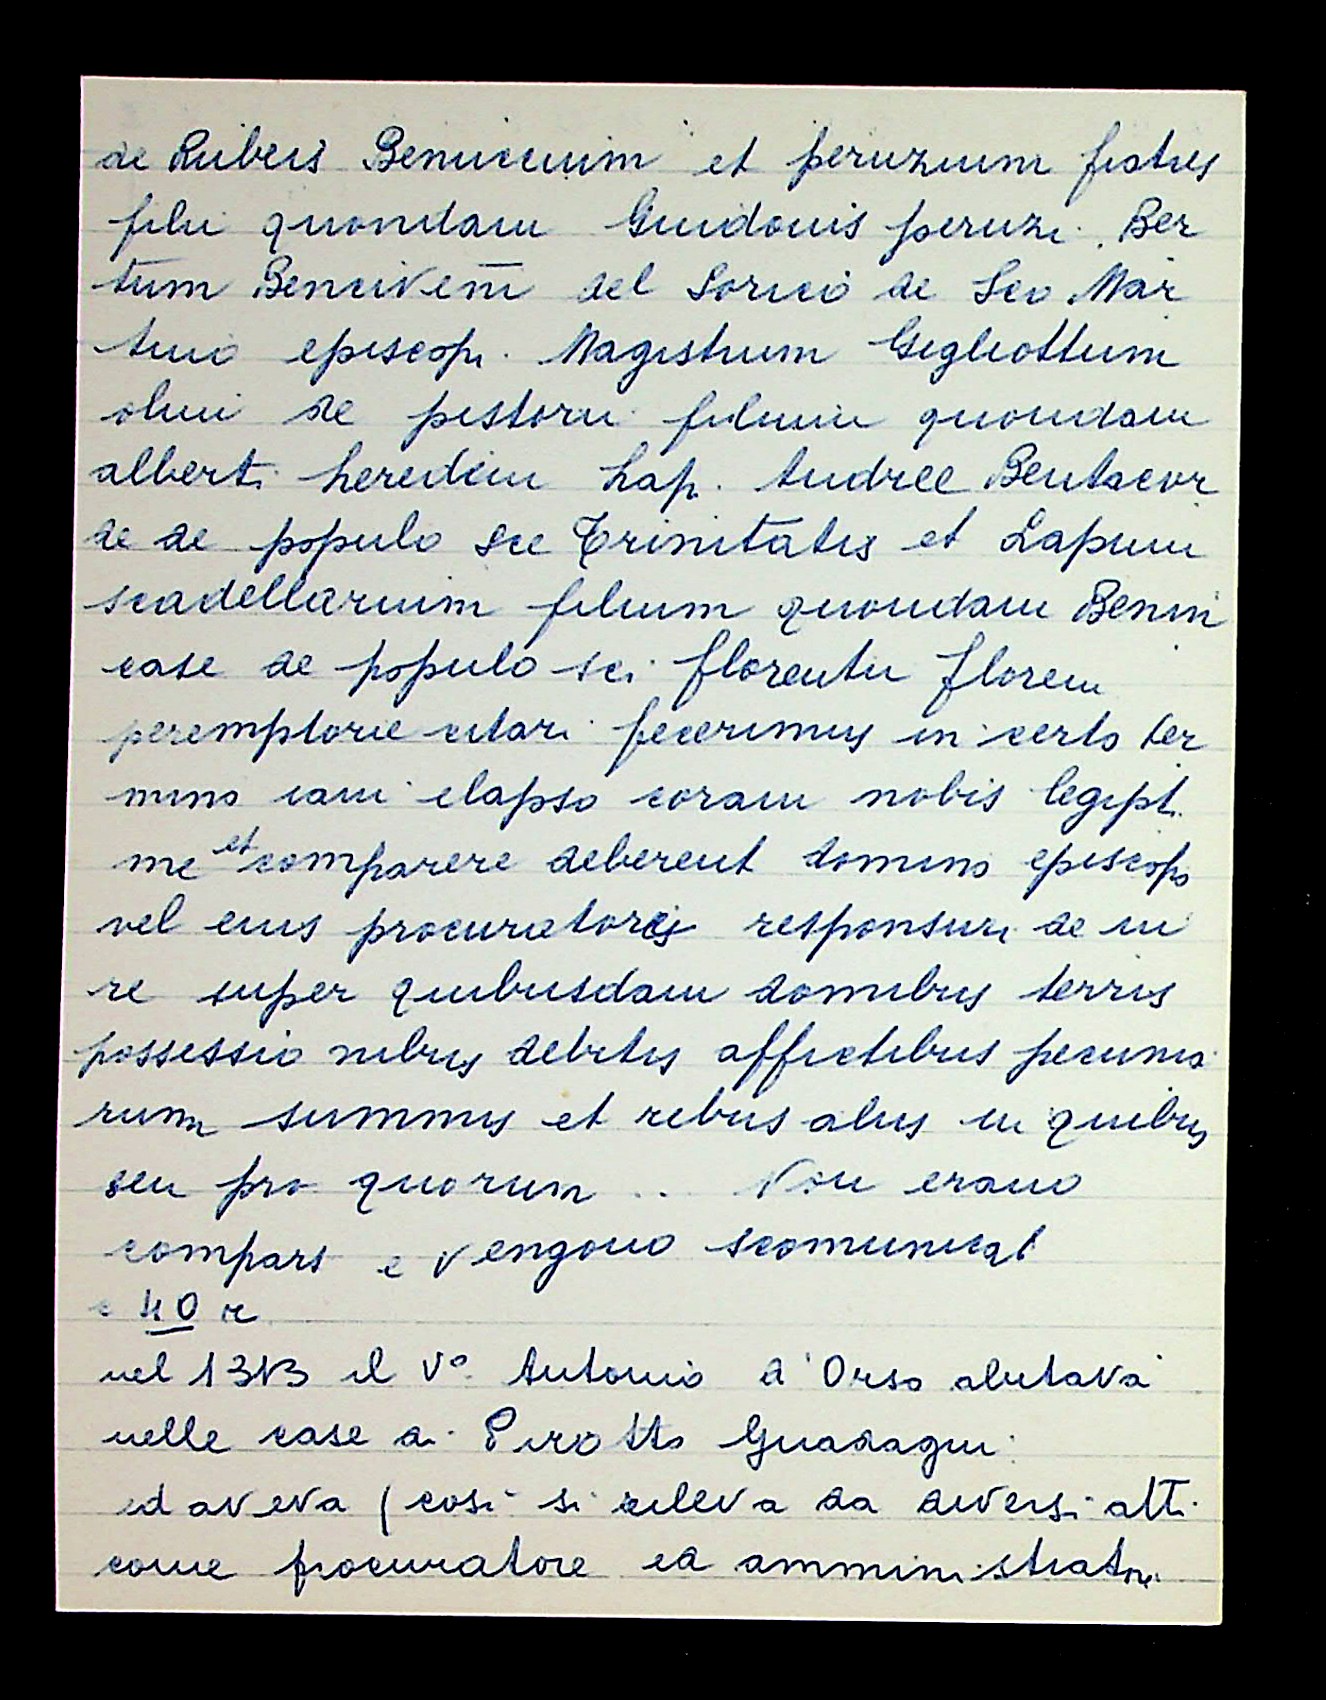 de Rubeis Benincuim et peruzium fratres
filii quondam Guidonis peruzi. Ber
tum Bencivenī del Soricio de Sco Mar
tino episcopi. Magistrum Gigliottum
olim de pistorii filium quondam
alberti heredem Lap. Andree Bentacor
de de populo Sce Trinitatis et Lapum
scadellarium filium quondam Benin
case de populo sci florentii floren
peremptorie citari fecerimus in certo ter
mino iam elapso coram nobis legipt.
me et comparere deberent domino episcopo
vel eius procuratoris responsuri de iu
re super quibusdam domibus terris
possessio nibus debitis affictibus pecunia
rum summis et rebus aliis in quibus
seu pro quorum .. Non erano
compars e vengono scomunicati
c 40 r
nel 1313 il V° Antonio d'Orso abitava
nelle case di Pirotto Guadagni
ed aveva (così si rileva da diversi atti
come procuratore ed amministratore